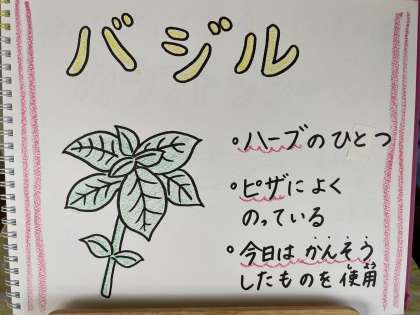 バジル
・ハーブのひとつ
・ピザによく
のっている
・今日はかんそう
したものを使用
しよう